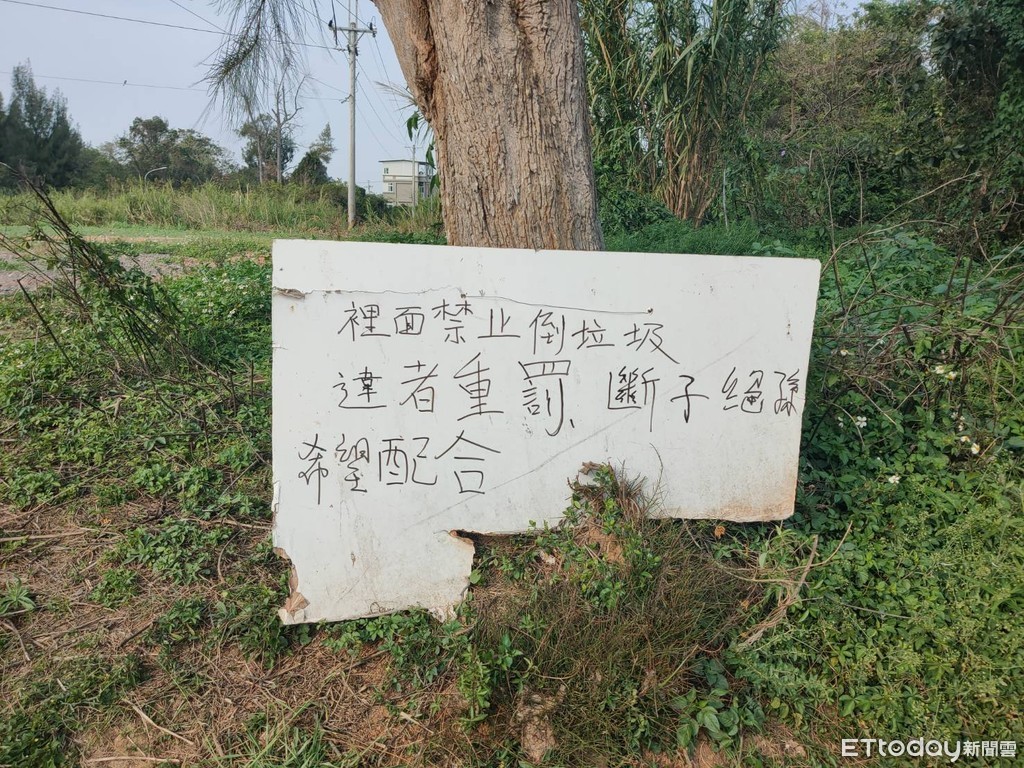 裡面禁止倒垃圾
違者重罰、斷子絕孫
希望配合
ETtoday新聞雲